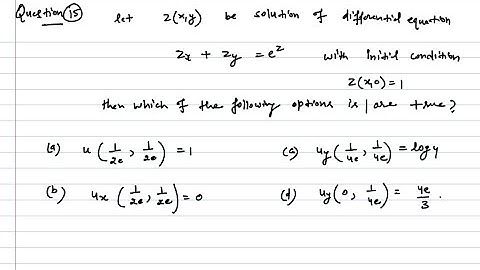 Question (15) let z(x,y) be solution of differential equation
zx + zy = e^z with initial condition
z(x,0) = 1
then which of the following options is | are true?
(a) u (1/2e, 1/2e) = 1
(c) uy (1/4e, 1/4e) = log 4
(b) ux (1/2e, 1/2e) = 0
(d) uy (0, 1/4e) = 4e/3.